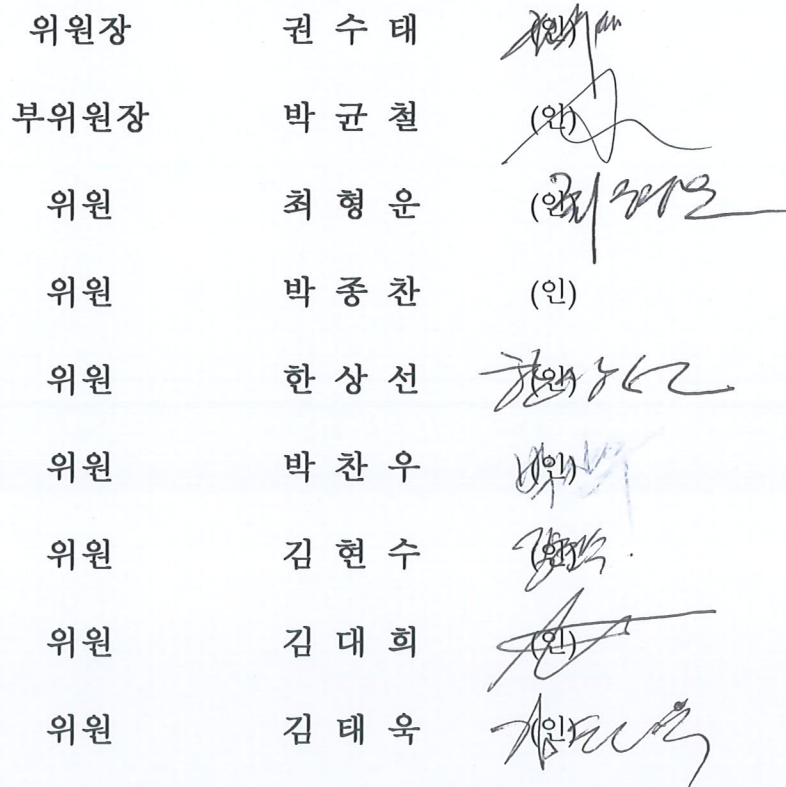 위원장 권 수 태 (인)
부위원장 박 균 철 (인)
위원 최 형 운 (인) 최형운
위원 박 종 찬 (인)
위원 한 상 선 (인)
위원 박 찬 우 (인)
위원 김 현 수 (인)
위원 김 대 희 (인)
위원 김 태 욱 (인)